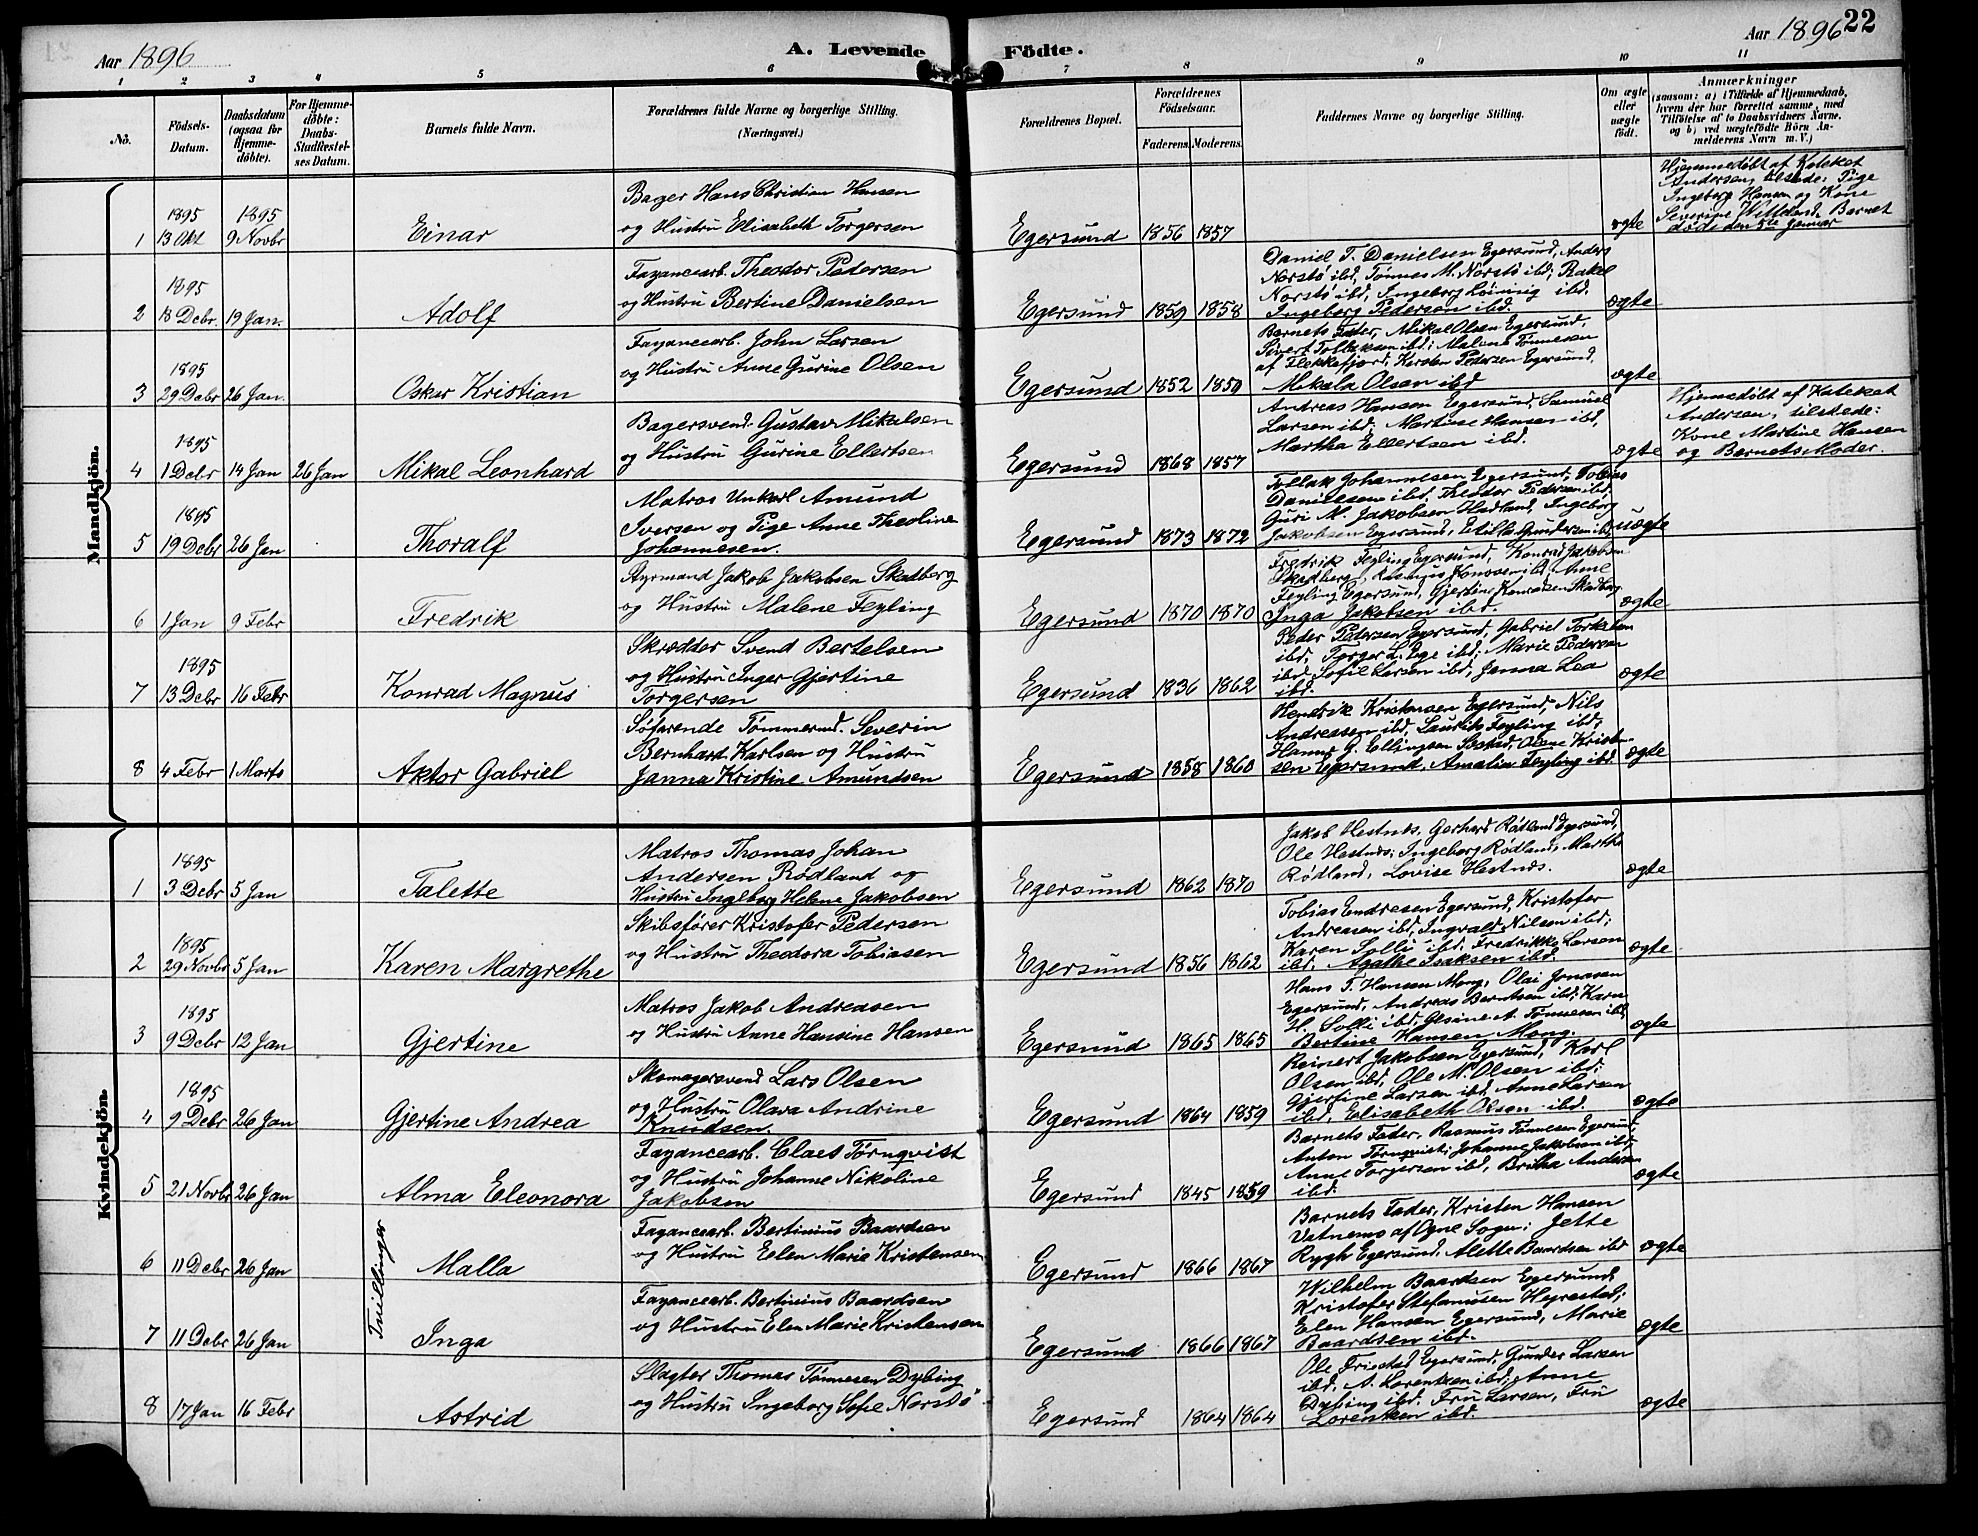 Aar 1896
A. Levende Födte.
Aar 1896 22
1 2 3 4 5 6 7 8 9 10 11
No.
Födsels-
Datum.
Daabsdatum
(ogsaa for
Hjemme-
döbte).
For Hjemme-
döbte:
Daabs-
Stadfæstel-
ses Datum.
Barnets fulde Navn.
Forældrenes fulde Navne og borgerlige Stilling.
(Næringsvei.)
Forældrenes Bopæl.
Forældrenes
Födselsaar.
Faderens. Moderens.
Faddernes Navne og borgerlige Stilling.
Om ægte
eller
uægte
födt.
Anmærkninger
(saasom: a) i Tilfælde af Hjemmedaab,
hvem der har forrettet samme, med
Tilföielse af to Daabsvidners Navne,
og b) ved uægtefödte Börn An-
melderens Navn m. V.)
Mandkjön.
1
1895
13 Okt
1895
9 Novbr
Einar
Bager Hans Christian Hansen
og Hustru Elisabeth Torgersen
Egersund 1856 1857
ægte
Hjemmedøbt af Kateket
Andersen, tilstede: Pige
Ingeborg Hansen og Kone
Severine Barnet
døde den 5te Januar
2
1895
18 Debr. 19 Jan.
Adolf
Fayancearb. Theodor Petersen
og Hustru Bertine Danielsen
Egersund 1859 1858
Daniel T. Danielsen Egersund, Anders
Norstø ibd, Tønnes M. Norstø ibd; Rakel
Norstø ibd, Ingeborg ibd.
Ingeborg Pedersen ibd.
ægte
3
1895
29 Debr 26 Jan.
Oskar Kristian
Fayancearb. John Larsen
og Hustru Anne Gurine Olsen
Egersund 1852 1850
Barnets Fader, Mikal Olsen Egersund,
Sivert Tollaksen ibd; Malene Tønnesen
af Flekkefjord, Karsten Pedersen Egersund,
Mikala Olsen ibd
ægte
4
1895
1 Debr 14 Jan 26 Jan
Mikal Leonhard
Bagersvend Gustav Mikalsen
og Hustru Gurine Ellertsen
Egersund 1868 1857
Andreas Hansen Egersund, Samuel
Larsen ibd; Martine Hansen ibd,
Martha Ellertsen ibd.
ægte
Hjemmedøbt af Kateket
Andersen, tilstede:
Kone Martine Hansen
og Barnets Moder.
5
1895
19 Debr 26 Jan
Thoralf
Matros Unkarl Amund
Iversen og Pige Anne Theoline
Johannesen.
Egersund 1873 1872
Tollak Johannesen Egersund, Tobias
Danielsen ibd, Theodor Pedersen ibd;
Guri M. Jakobsen Hadland, Ingeborg
Jakobsen Egersund, Gundersen ibd
uægte
6
1 Jan 9 Febr
Fredrik
Styrmand Jakob Jakobsen Skadberg
og Hustru Malene Feyling
Egersund 1870 1870
Fredrik Feyling Egersund, Konrad Jakobsen
Skadberg, Rasmus ibd; Anne
Feyling Egersund, Gjertine Konradsen Skadberg
Inga Jakobsen ibd.
ægte
7
1895
13 Debr 16 Febr
Konrad Magnus
Skrædder Svend Bertelsen
og Hustru Inger Gjertine
Torgersen
Egersund 1836 1862
Peder Pedersen Egersund, Gabriel Torkelsen
ibd, Torger L. Ege ibd; Marie Pedersen
ibd, Sofie Larsen ibd, Janna Lea
ibd.
ægte
8
4 Febr 1 Marts
Aktor Gabriel
Søfarende Tømmermd. Severin
Bernhard Karlsen og Hustru
Janna Kristine Amundsen
Egersund 1858 1860
Hendrik Kristensen Egersund, Nils
Andreassen ibd, Laurits Feyling ibd,
Hanne G. Ellingsen Olene Kristen-
sen Egersund, Amalia Feyling ibd
ægte
Kvindekjön.
1
1895
3 Debr 5 Jan
Talette
Matros Thomas Johan
Andersen Rødland og
Hustru Ingeborg Helene Jakobsen
Egersund 1862 1870
Jakob Hestnes, Gerhard Rødland Egersund,
Ole Hestnes; Ingeborg Rødland, Marthe
Rødland, Lovise Hestnes.
ægte
2
1895
29 Novbr 5 Jan
Karen Margrethe
Skibsfører Kristofer Pedersen
og Hustru Theodora Tobiasen
Egersund 1856 1862
Tobias Endresen Egersund, Kristofer
Andreasen ibd, Ingvald Nilsen ibd;
Karen Solli ibd, Fredrikke Larsen
ibd, Agathe Isaksen ibd.
ægte
3
1895
9 Debr 12 Jan
Gjertine
Matros Jakob Andreasen
og Hustru Anne Hansine Hansen
Egersund 1865 1865
Hans T. Hansen Mong, Olai Jonassen
Egersund, Andreas Berntsen ibd; Karn
H. Solli ibd, Gesine A. Tønnesen ibd,
Bertine Hansen Mong.
ægte
4
1895
9 Debr 26 Jan
Gjertine Andrea
Skomagersvend Lars Olsen
og Hustru Olava Andrine
Knudsen.
Egersund 1864 1859
Reinert Jakobsen Egersund, Karl
Olsen ibd, Ole M. Olsen ibd;
Gjertine Larsen ibd, Anne Larsen
ibd, Elisabeth Olsen ibd.
ægte
5
21 Novbr 26 Jan
Alma Eleonora
Fayancearb. Claes Törnqvist
og Hustru Johanne Nikoline
Jakobsen
Egersund 1845 1859
Barnets Fader, Rasmus Tønnesen Egersund,
Anton Törnqvist; Johanne Jakobsen ibd,
Anne Torgersen ibd, Britha Andersen
ibd.
ægte
Tvillinger
6
11 Debr 26 Jan
Malla
Fayancearb. Bertinius Baardsen
og Hustru Elen Marie Kristensen
Egersund 1866 1867
Barnets Fader, Kristen Hansen
Vatnemo af Ogne Sogn; Jette
Rygh Egersund, Alette Baardsen ibd
ægte
7
11 Debr 26 Jan
Inga
Fayancearb. Bertinius Baardsen
og Hustru Elen Marie Kristensen
Egersund 1866 1867
Wilhelm Baardsen Egersund,
Kristofer Stefanusen Hegrestad;
Elen Hansen Egersund, Marie
Baardsen ibd.
ægte
8
17 Jan 16 Febr
Astrid
Slagter Thomas Tønnesen Dybing
og Hustru Ingeborg Sofie Norstø
Egersund 1864 1864
Ole Friestad Egersund, Gunder Larsen
ibd, A. Lorentzen ibd; Anne
Dybing ibd. Fru Larsen, Fru
Lorentzen ibd.
ægte